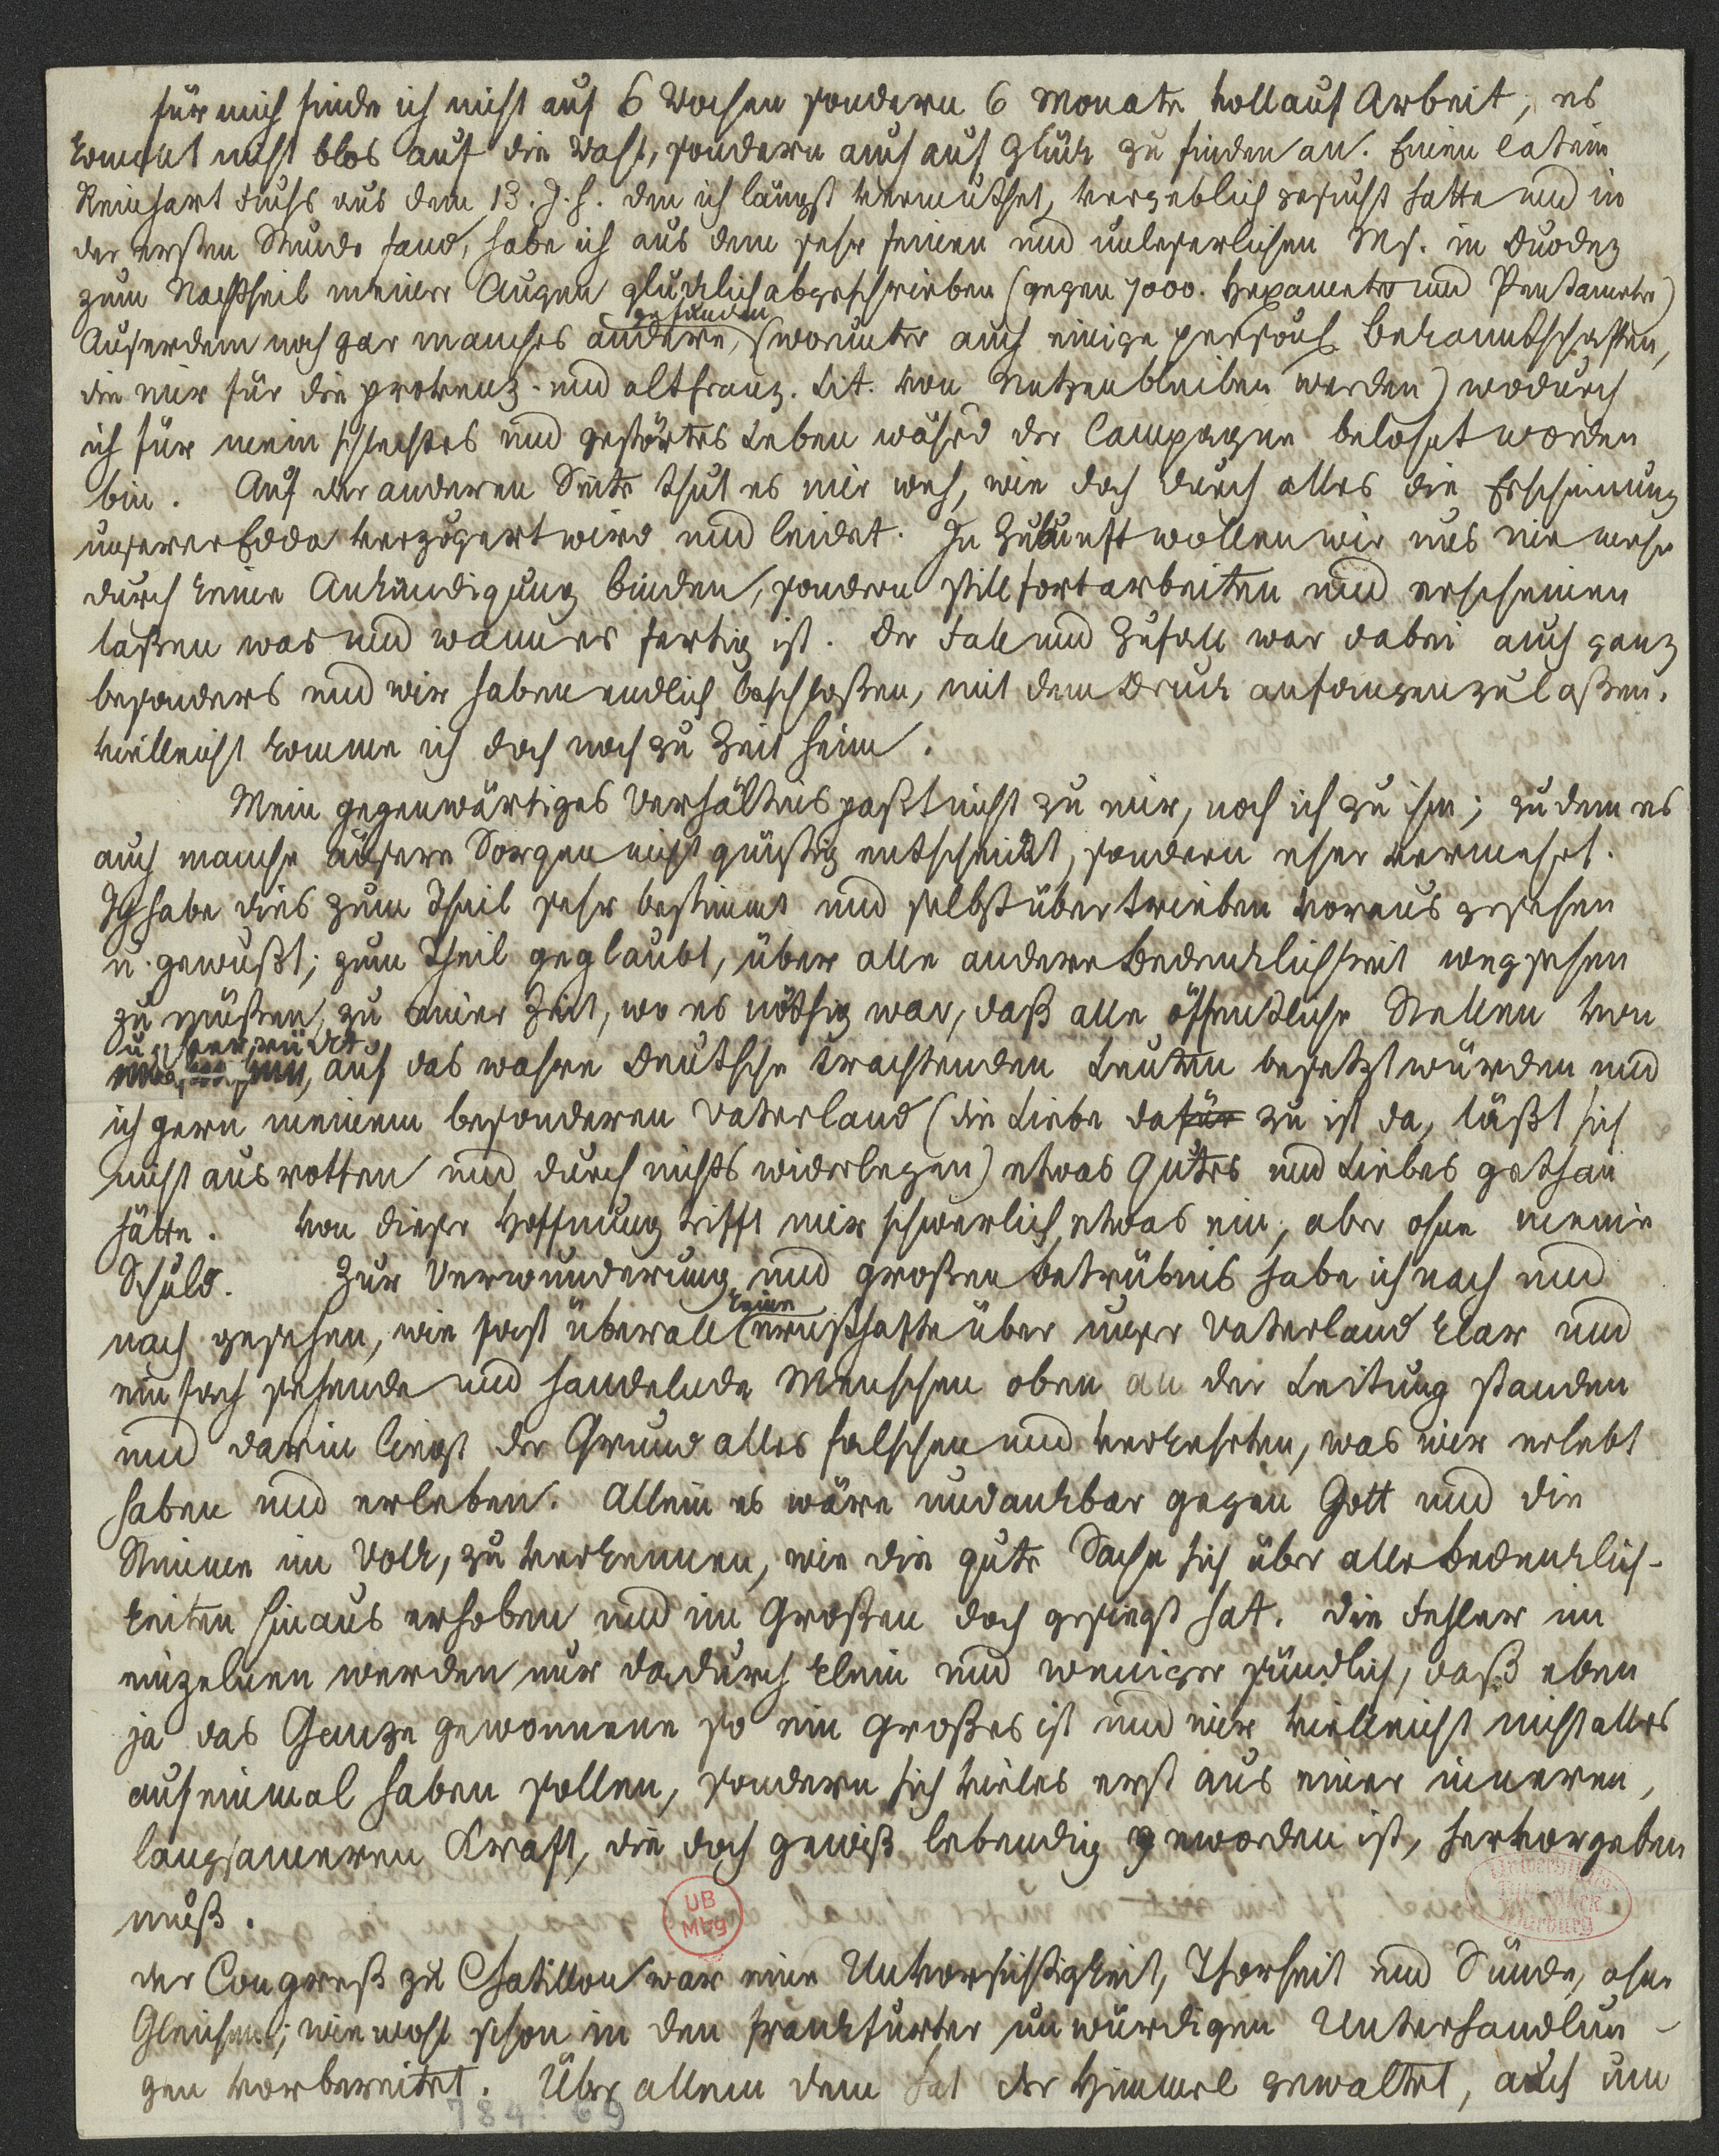 für mich finde ich nicht auf 6 Wochen sondern 6 Monate vollauf Arbeit; es
kommt nicht blos auf die Wahl, sondern auch auf Glück zu finden an. Einen latein
Reinhart Fuchs aus dem 13. J. h. den ich längst vermuthet, vergeblich gesucht hatte und in
der ersten Stunde fand, habe ich aus dem sehr feinen und unleserlichen Ms. in Duodez
zum Nachtheil meiner Augen glücklich abgeschrieben (gegen 7000. Hexameter und Pentameter)
gefunden
Außerdem noch gar manches andere, (worunter auch einige persönl Bekanntschaften,
die mir für die provenz. und altfranz. Lit. von Nutzen bleiben werden) wodurch
ich für mein schlechtes und gestörtes Leben währd der Campagne belohnt worden
bin. Auf der anderen Seite thut es mir weh, wie doch durch alles die Erscheinung
unserer Edda verzögert wird und leidet. In Zukunft wollen wir uns nie mehr
durch keine Ankündigung binden, sondern still fortarbeiten und erscheinen
laßen was und wann es fertig ist. Der Fall und Zufall war dabei auch ganz
besonders und wir haben endlich beschloßen, mit dem Druck anfangen zu laßen.
vielleicht komme ich doch noch zu Zeit heim.
Mein gegenwärtiges Verhältnis paßt nicht zu mir, noch ich zu ihm; zudem es
auch manche äußere Sorgen nicht günstig entscheidet, sondern eher vermehrt.
Ich habe dies zum Theil sehr bestimmt und selbst übertrieben voraus gesehen
u. gewußt; zum Theil geglaubt, über alle andere Bedenklichkeit wegsehen
zu müßen, zu einer Zeit, wo es nöthig war, daß alle öffentliche Stellen von
auf das wahre Deutsche trachtenden Leuten besetzt würden und
ich gern meinem besonderen Vaterland (die Liebe dafür zu ist da, läßt sich
nicht ausrotten und durch nichts widerlegen) etwas Gutes und Liebes gethan
hätte. Von dieser Hoffnung trifft mir schwerlich etwas ein, aber ohne meine
Schuld. Zur Verwunderung und großen Betrübnis habe ich nach und
keine
nach gesehen, wie fast überall ernsthafte über unser Vaterland klar und
einfach sehende und handelnde Menschen oben an der Leitung standen
und darin liegt der Grund alles falschen und verkehrten, was wir erlebt
haben und erleben. Allein es wäre undankbar gegen Gott und die
Stimme im Volk, zu verkennen, wie die gute Sache sich über alle Bedenklich-
keiten hinaus erhoben und im Großen doch gesiegt hat. Die Fehler im
einzelnen werden nur dadurch klein und weniger sündlich, daß eben
ja das Ganze gewonnene so ein großes ist und wir vielleicht nicht alles
auf einmal haben sollen, sondern sich vieles erst aus einer inneren,
langsameren Kraft, die doch gewiß lebendig geworden ist, hervorgeben
muß.
UB
Mbg
Universitäts
Bibliothek
Marburg
der Congreß zu Chatillon war eine Unvorsichtigkeit, Thorheit und Sünde, ohne
Gleichen; wiewohl schon in den Frankfurter unwürdigen Unterhandlun-
gen vorbereitet. Über allem dem hat der Himmel gewaltet, auch um
784:69